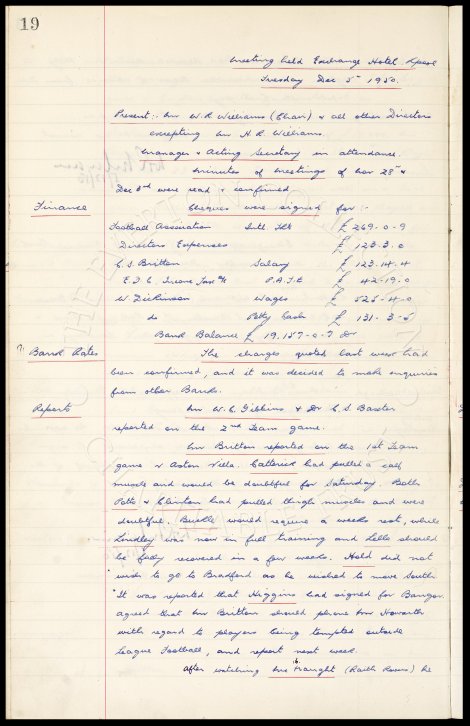 19
Meeting held Exchange Hotel. Lpool
Tuesday Dec 5th 1950.
Present:- Mr W.R. Williams (Chair) & all other Directors
excepting Mr H.R. Williams.
Manager & Acting Secretary in attendance.
Minutes of Meetings of Nov 28th &
Dec 2nd were read & confirmed
Finance
Cheques were signed for:-
Football Association £ 269-0-9
Directors Expenses £ 123-3-0
C.S. Britton Salary £ 123-14-4
Income Tax a/c £ 42-19-0
W. Dickinson Wages £ 525-4-0
do Petty Cash £ 131-3-5
Bank Balance £ 19,157-0-7 Dr
Bank Rates
The charges quoted last week had
been confirmed, and it was decided to make enquiries
from other Banks.
Reports
Mr W.C. Gibbins & Dr C.S. Baxter
reported on the 2nd Team game.
Mr Britton reported on the 1st Team
game v Aston Villa. Catterick had pulled a calf
muscle and would be doubtful for Saturday. Both
Potts & Clinton had pulled thigh muscles and were
doubtful. Buckle would require a weeks rest, while
Lindley was now in full training and Lello should
be fully recovered in a few weeks. Hold did not
wish to go to Bradford as he wished to move South.
It was reported that Higgins had signed for Bangor.
agreed that Mr Britton should phone Mr Howarth
with regard to players being tempted outside
League Football, and report next week.
After watching (Raith Rovers) he